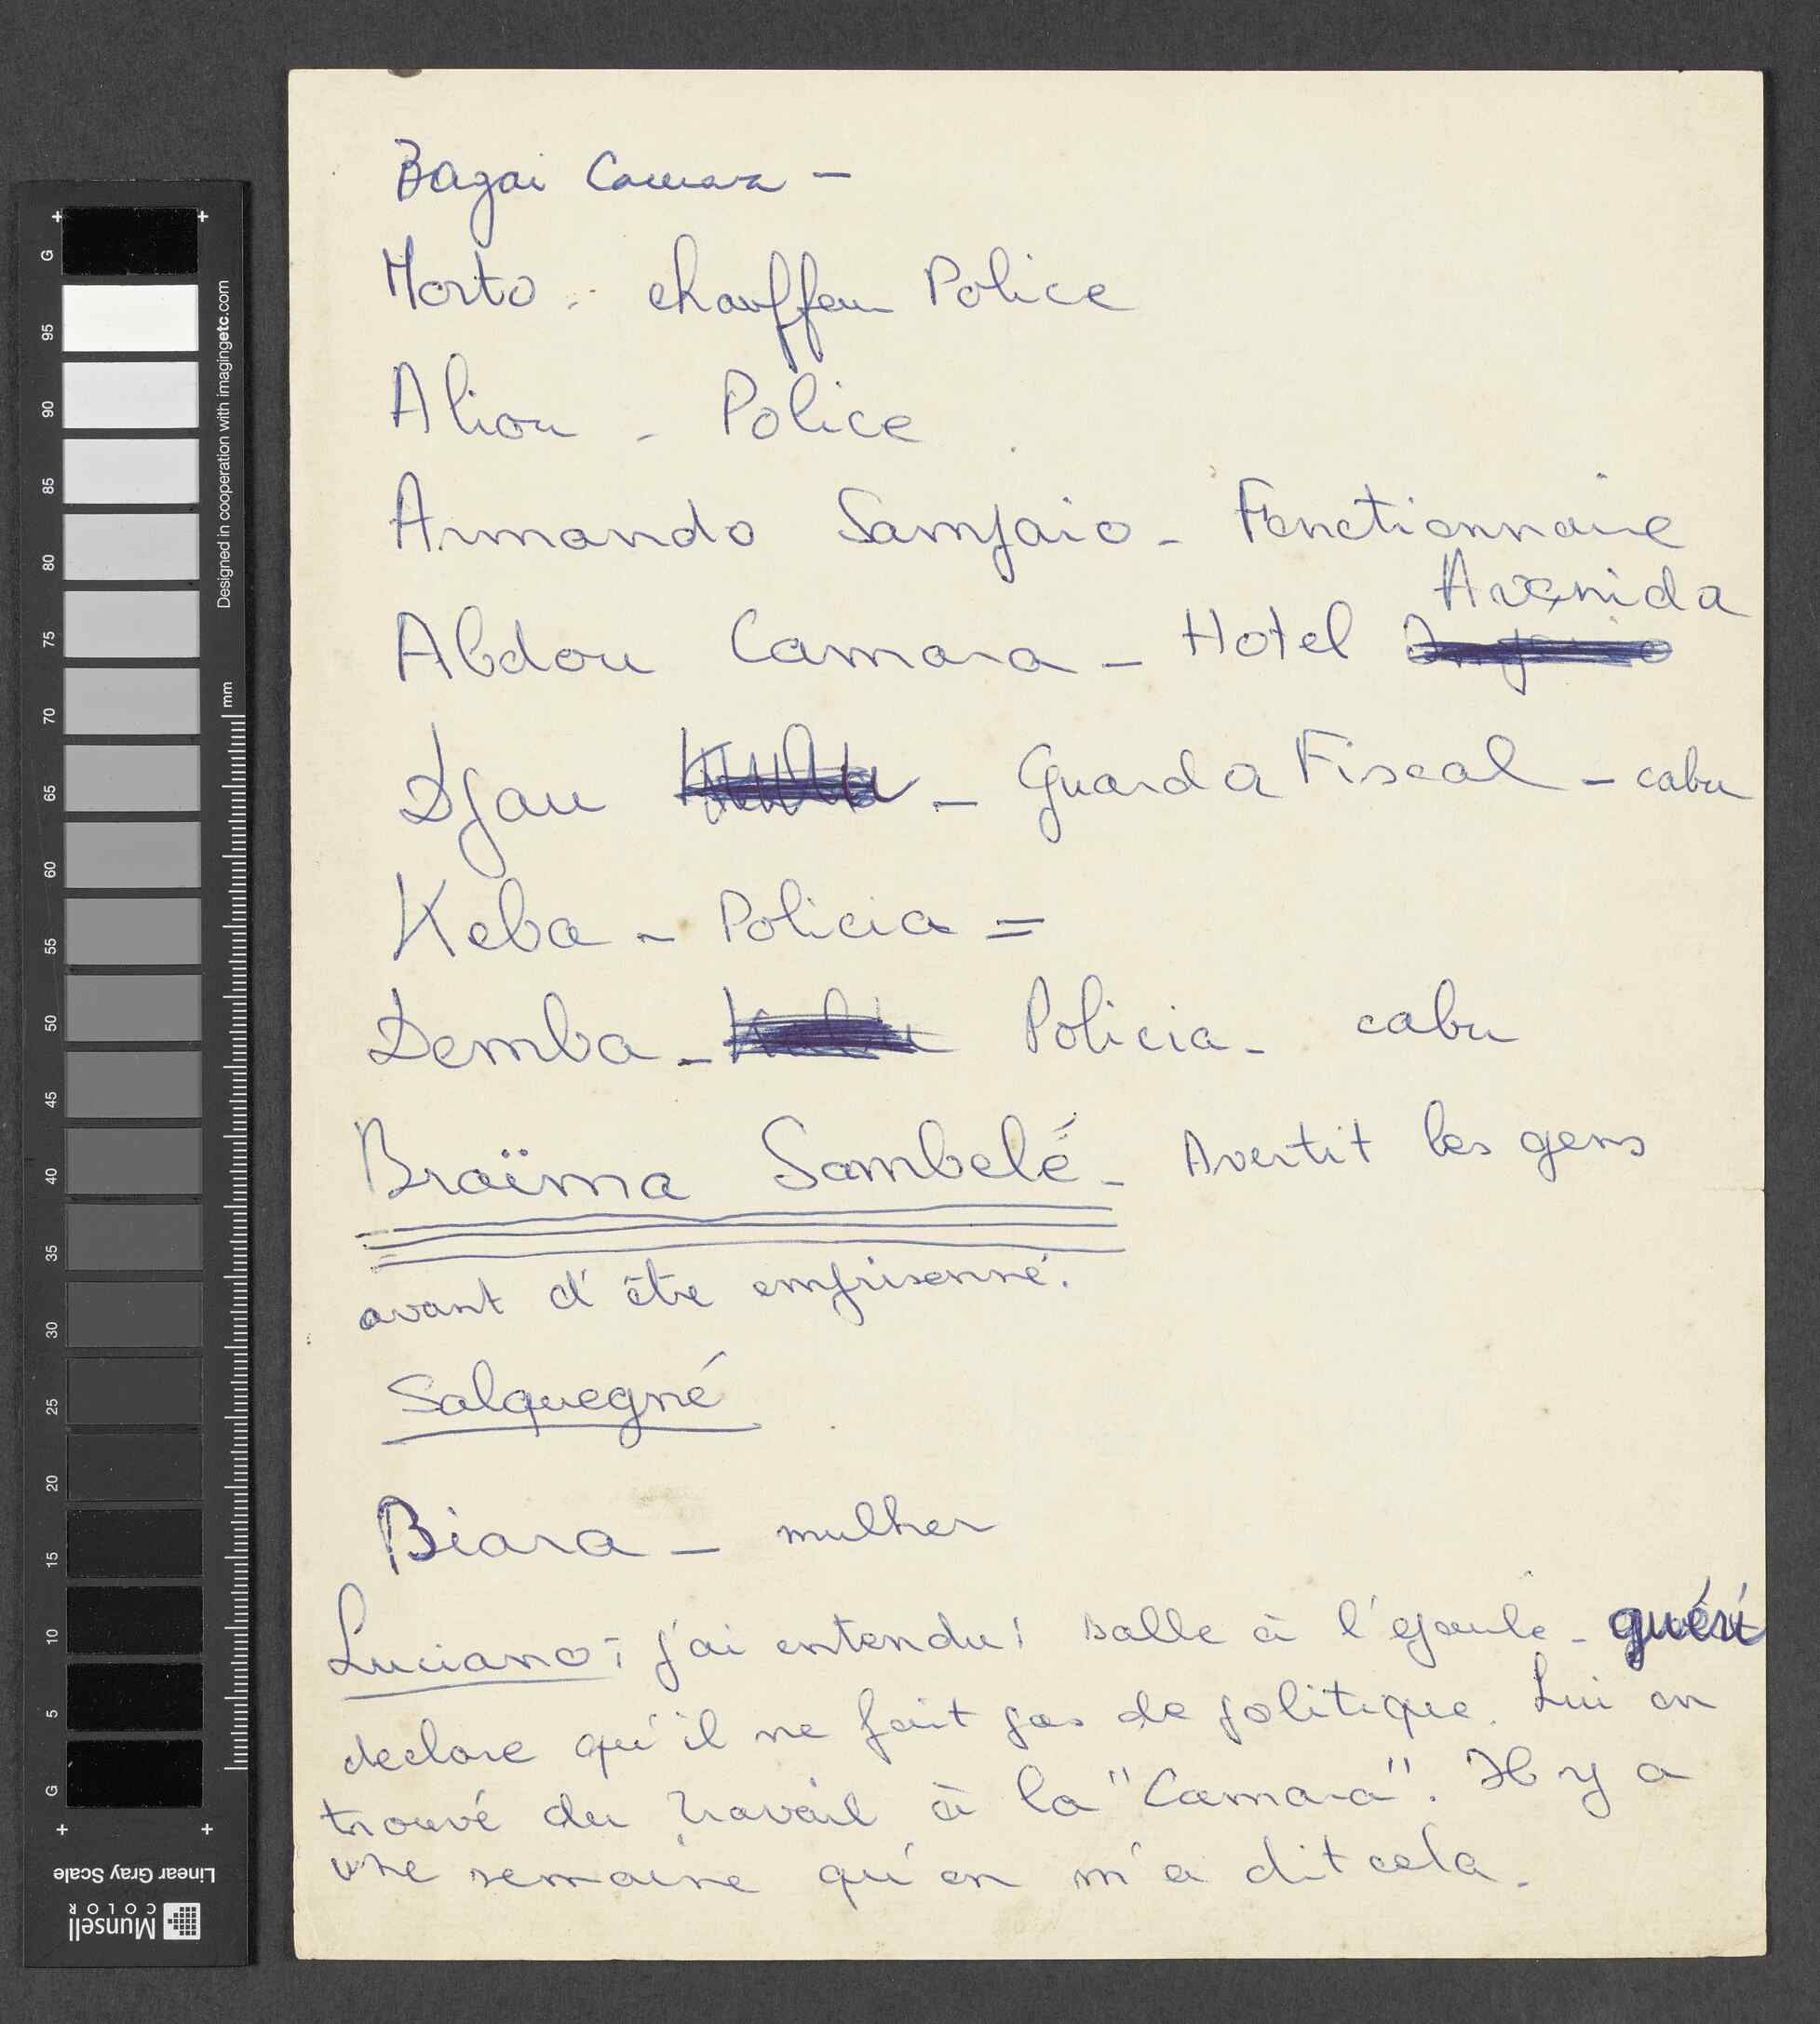 Bagai Camara -
Morto - chauffeu Police
Aliou - Police
Armando Sampaio - Fonctionnaire
Avenida
Abdou Camara - Hotel
Djau - Guarda Fiscal - cabu
Keba - Policia =
Demba - Policia - cabu
Braïma Sambelé - Avertit les gens
avant d'être emprisonné.
Salquegné
Biara - mulher
Luciano : j'ai entendu : balle à l'épaule - guéri
declare qu'il ne fait pas de politique. Lui on
trouvé du travail à la "Camara". Il y a
une semaine qu'on m'a dit cela.
G
95
90
85
80
75
70
65
60
55
50
45
40
35
30
25
20
15
10
5
G
Designed in cooperation with imagingetc.com
mm
Linear Gray Scale
Munsell
COLOR